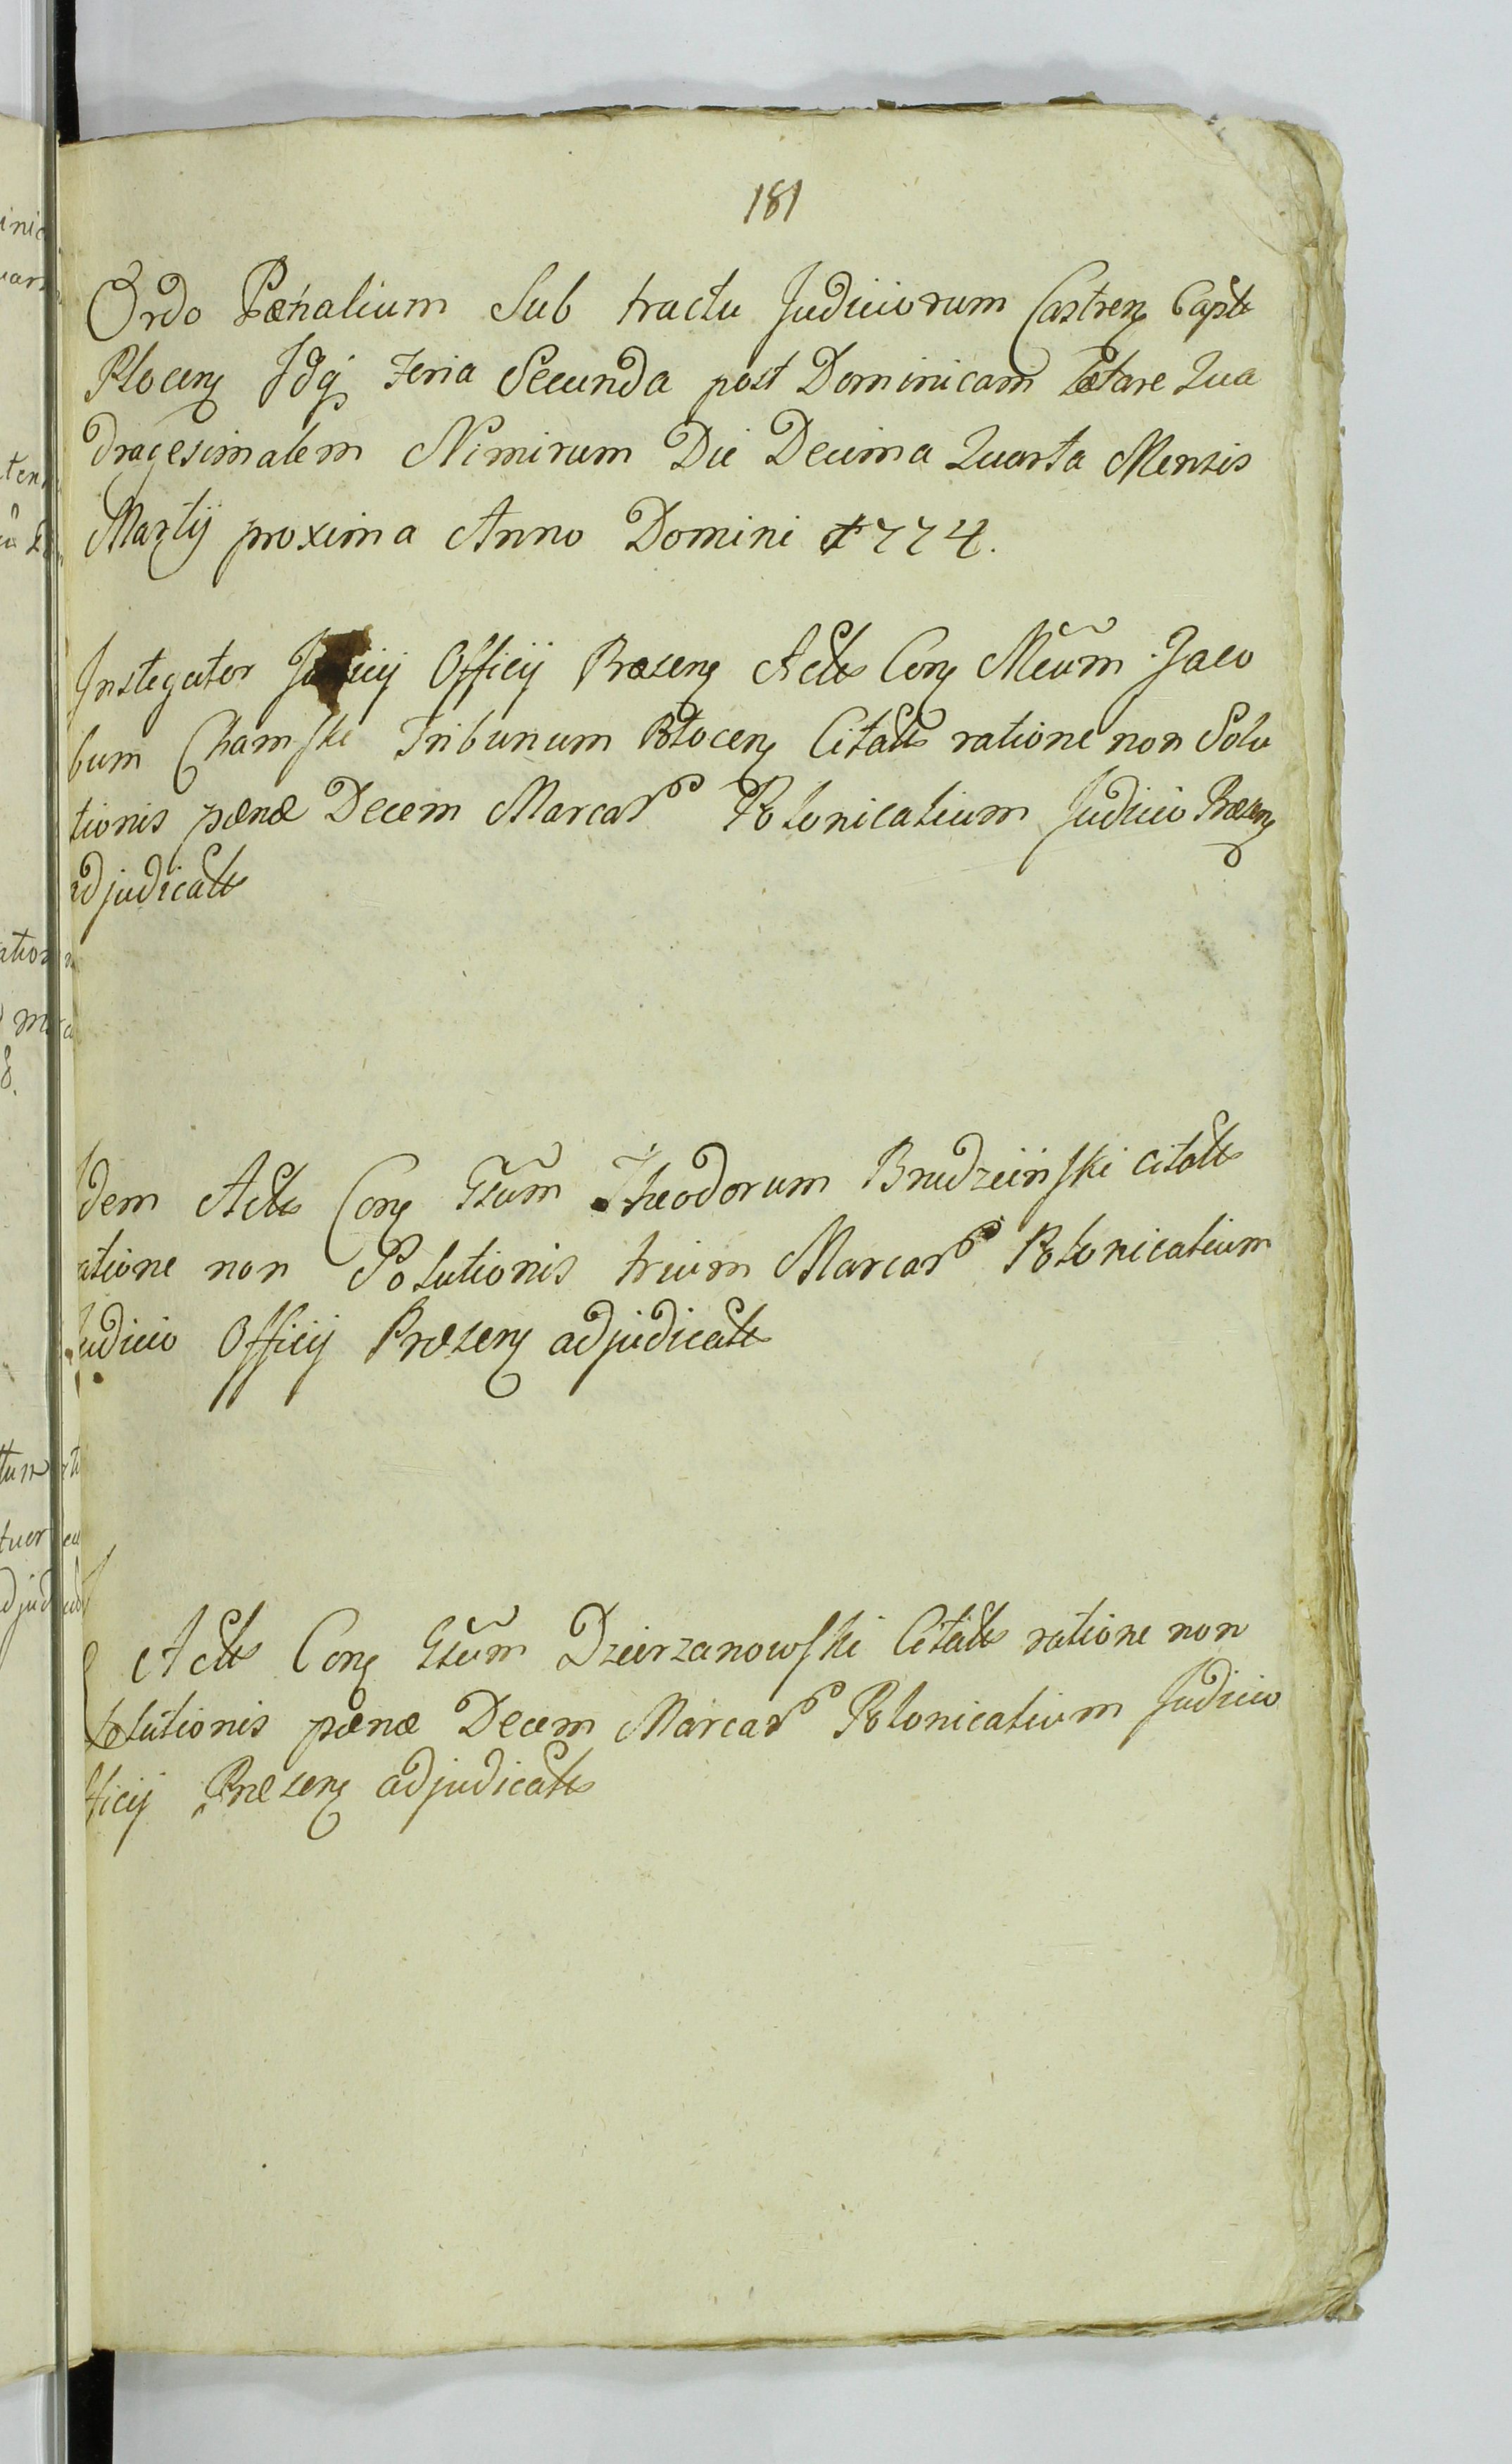 181
Ordo Pœnalium Sub tractu Judiciorum Castren Captt
Plocen Idq Feria Secunda post Dominicam Lætare Qua
dragesimalem Nimirum Die Decima Quarta Mensis
Martij proxima Anno Domini 1774.
Instigator Officij Præsen Actts Con Mcum Jaco
bum Chamski Tribunum Plocen Citatts ratione non Solu
tionis pœnæ Decem Marcar Polonicalium Judicio Præsen
adjudicatts
Idem Actts Con Gsum Theodorum Brudzinski citatts
ratione non Solutionis trium Marcar Polonicalium
Judicio Officij Præsen adjudicatts
Actts Con Gsum Dzierzanowski Citatts ratione non
Solutionis pœnæ Decem Marcar Polonicalium Judicio
fficij Præsen adjudicatts